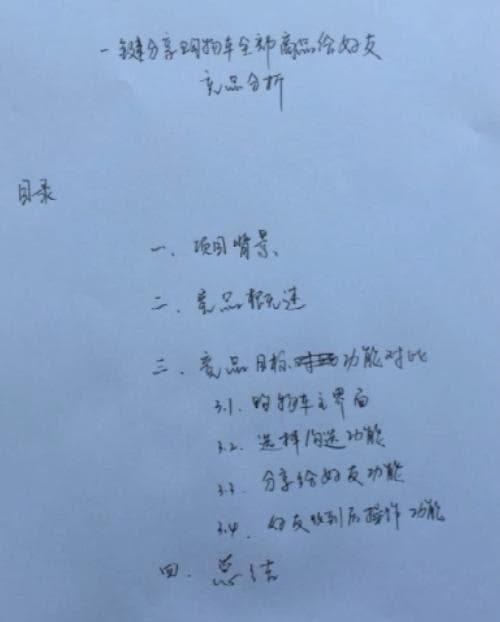 一键分享购物车全部商品给好友
竞品分析
目录
一、项目背景
二、竞品概述
三、竞品目标功能对比
3.1. 购物车主界面
3.2. 选择勾选功能
3.3 分享给好友功能
3.4. 好友收到后操作功能
四、总结